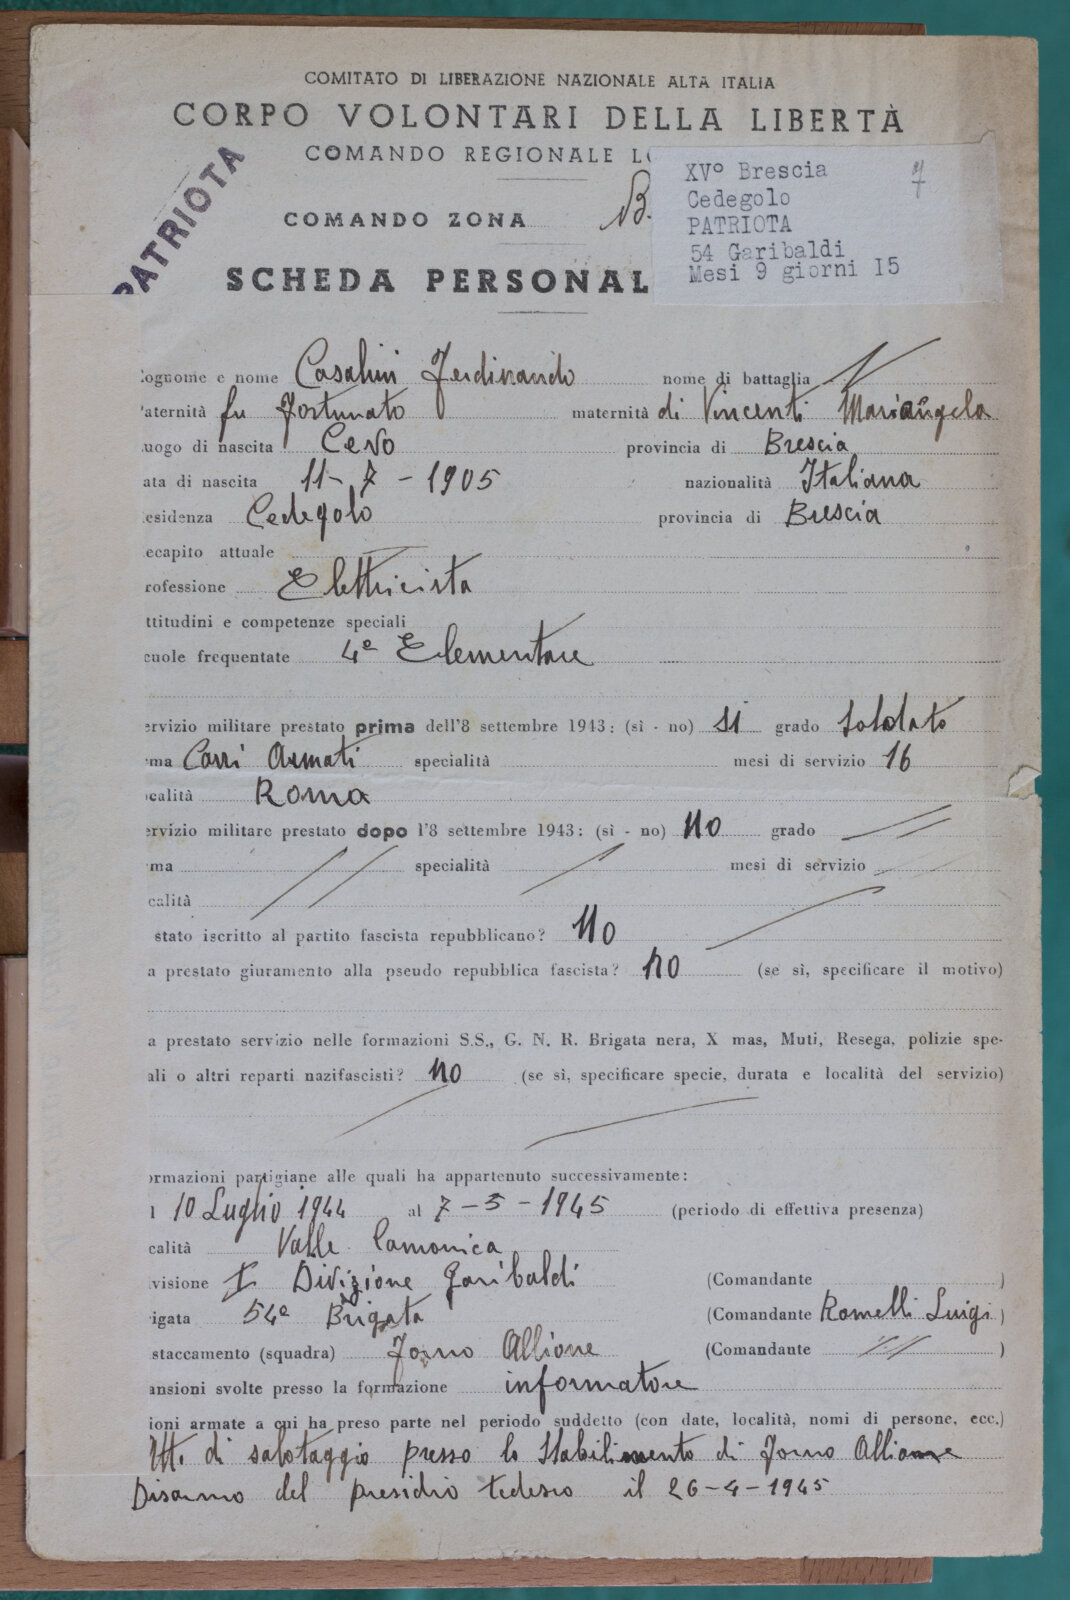 COMITATO DI LIBERAZIONE NAZIONALE ALTA ITALIA
CORPO VOLONTARI DELLA LIBERTÀ
COMANDO REGIONALE LO
PATRIOTA
COMANDO ZONA B.
XVº Brescia 7
Cedegolo
PATRIOTA
54 Garibaldi
Mesi 9 giorni I5
SCHEDA PERSONAL
ognome e nome Casalini Ferdinando nome di battaglia
aternità fu Fortunato maternità di Vincenti Mariangela
uogo di nascita Cevo provincia di Brescia
ata di nascita 11-7-1905 nazionalità Italiana
esidenza Cedegolo provincia di Brescia
ecapito attuale
rofessione Elettricista
ttitudini e competenze speciali
cuole frequentate 4ª Elementare
ervizio militare prestato prima dell'8 settembre 1943: (sì - no) si grado Soldato
ma Carri Armati specialità mesi di servizio 16
calità Roma
ervizio militare prestato dopo l'8 settembre 1943: (sì - no) no grado //
ma // specialità / mesi di servizio //
calità
stato iscritto al partito fascista repubblicano? no
a prestato giuramento alla pseudo repubblica fascista? no (se sì, specificare il motivo)
a prestato servizio nelle formazioni S.S., G. N. R. Brigata nera, X mas, Muti, Resega, polizie spe-
ali o altri reparti nazifascisti? no (se sì, specificare specie, durata e località del servizio)
ormazioni partigiane alle quali ha appartenuto successivamente:
l 10 Luglio 1944 al 7-5-1945 (periodo di effettiva presenza)
calità Valle Camonica
visione I Divizione Garibaldi (Comandante )
igata 54ª Brigata (Comandante Romelli Luigi)
staccamento (squadra) Forno Allione (Comandante //-// )
ansioni svolte presso la formazione informatore
ioni armate a cui ha preso parte nel periodo suddetto (con date, località, nomi di persone, ecc.)
Att. di sabotaggio presso lo Stabilimento di Forno Allione
Disarmo del presidio tedesco il 26-4-1945